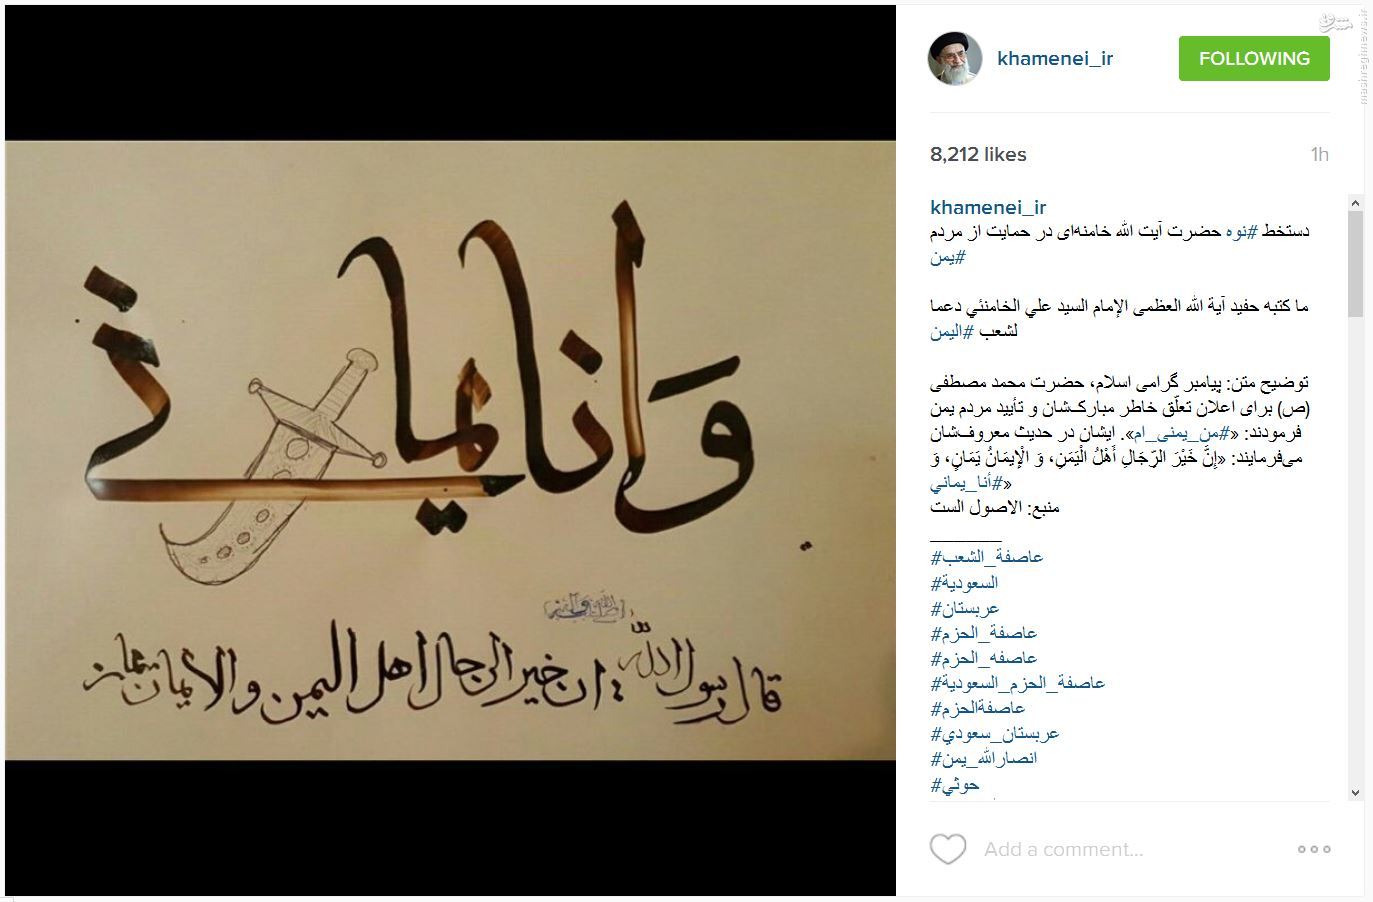 وانا یمانی
قال رسول الله: ان خیر الرجال اهل الیمن والایمان یمان
khamenei_ir
FOLLOWING
8,212 likes
1h
khamenei_ir
دستخط #نوه حضرت آیت الله خامنه‌ای در حمایت از مردم
#یمن
ما كتبه حفيد آية الله العظمى الإمام السيد علي الخامنئي دعما
لشعب #اليمن
توضیح متن: پیامبر گرامی اسلام، حضرت محمد مصطفی
(ص) برای اعلان تعلّق خاطر مبارک‌شان و تأیید مردم یمن
فرمودند: «#من_یمنی_ام». ایشان در حدیث معروف‌شان
می‌فرمایند: «إِنَّ خَيْرَ الرّجَالِ أَهْلُ الْيَمَنِ، وَ الْإِيمَانُ يَمَانٍ، وَ
#أنا_يماني»
منبع: الاصول الست
________
#عاصفة_الشعب
#السعودية
#عربستان
#عاصفة_الحزم
#عاصفه_الحزم
#عاصفة_الحزم_السعودية
#عاصفةالحزم
#عربستان_سعودي
#انصارالله_يمن
#حوثي
Add a comment...
mashreghnews.ir